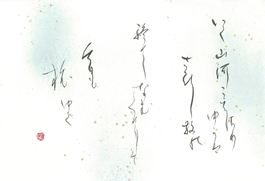 いく山河こえさり
ゆかは
さびしさの
終てなむくにそ
けふも
旅ゆく